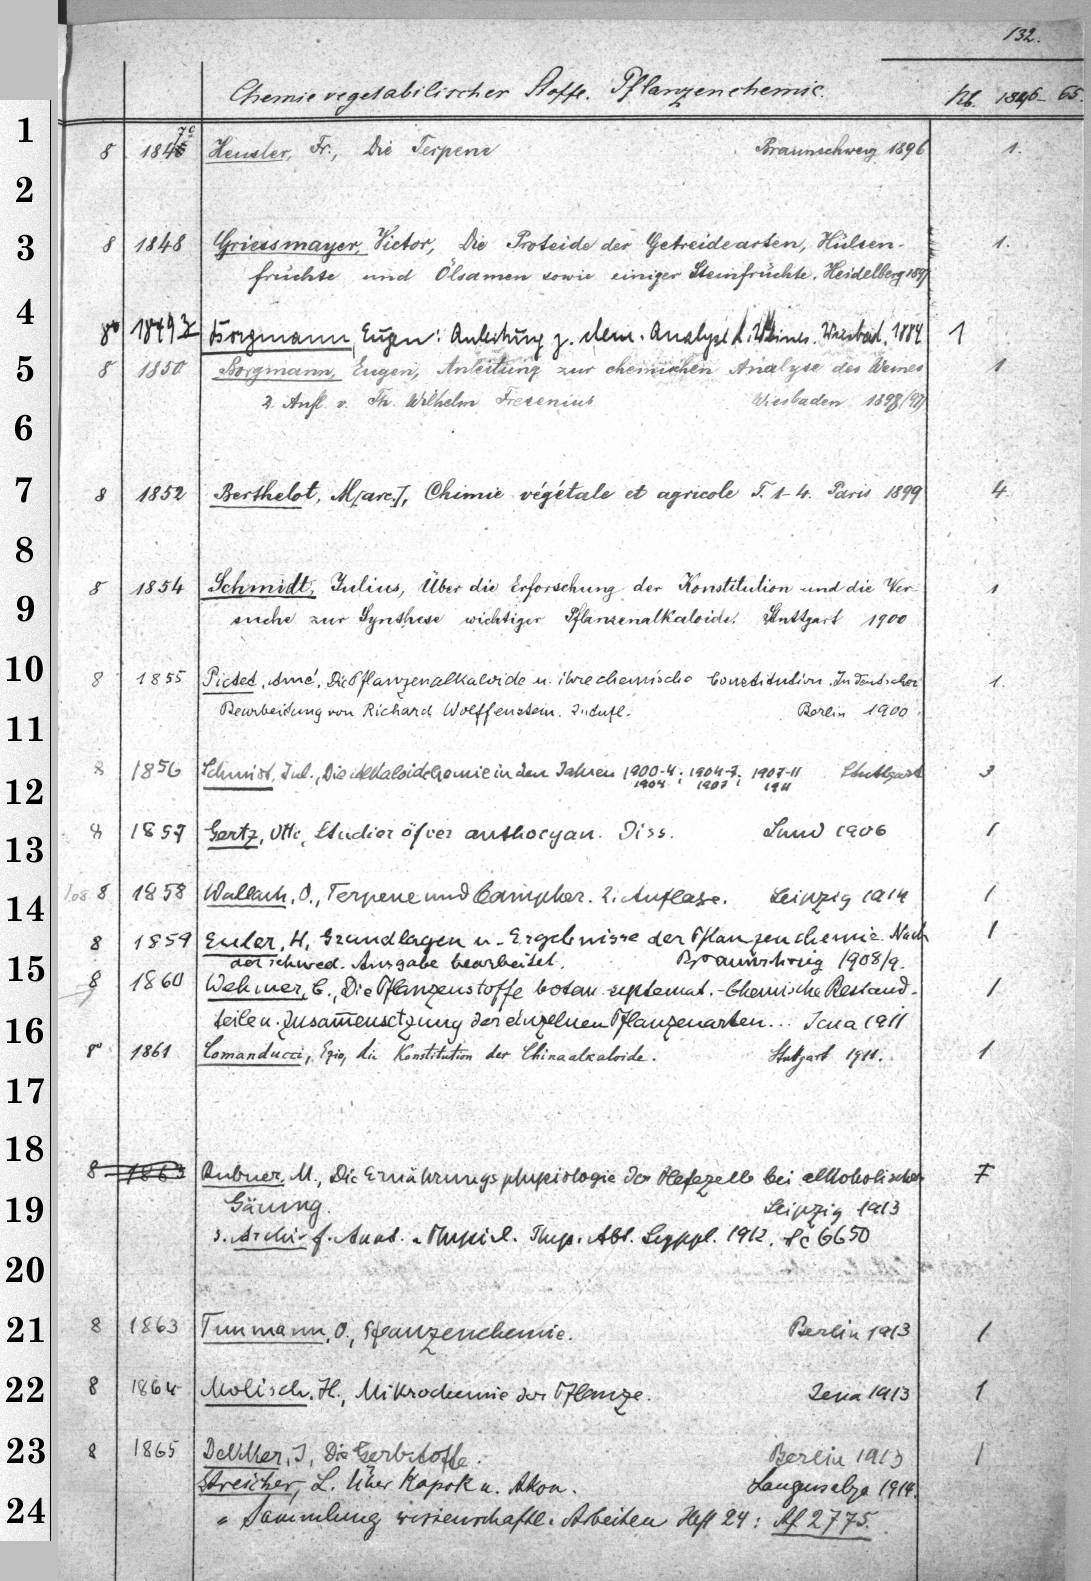 132.
Chemie vegetabilischer Stoffe. Pflanzenchemie. Kb. 1846-65.
1
8 1847a Heusler, Fr., Die Terpene Braunschweig 1896 1.
2
3
8 1848 Griessmayer, Victor, Die Proteide der Getreidearten, Hülsen- 1.
früchte und Ölsamen sowie einiger Steinfrüchte. Heidelberg 1897
4
8° 1849 Borgmann, Eugen: Anleitung z. chem. Analyse d. Weines. Wiesbad. 1884 1
5
8 1850 Borgmann, Eugen, Anleitung zur chemischen Analyse des Weines 1
2. Aufl v. Th. Wilhelm Fresenius Wiesbaden 1898
6
7
8 1852 Berthelot, M[arc.], Chimie végétale et agricole T. 1-4. Paris 1899 4
8
8 1854 Schmidt, Julius, Über die Erforschung der Konstitution und die Ver- 1
9
suche zur Synthese wichtiger Pflanzenalkaloide. Stuttgart 1900
10
8 1855 Pictet, Amé, Die Pflanzenalkaloide u. ihre chemische Constitution. In deutscher 1.
Bearbeitung von Richard Wolffenstein. 2. Aufl. Berlin 1900.
11
8 1856 Schmidt, Jul., Die Alkaloidchemie in den Jahren 1900-4; 1904-7; 1907-11 Stuttgart 3
1904 1907 1911
12
8 1857 Gertz, Otto, Studier öfver anthocyan. Diss. Lund 1906 1
13
8 1858 Wallach, O., Terpene und Campher. 2. Auflage. Leipzig 1914 1
14
8 1859 Euler, H., Grundlagen u. Ergebnisse der Pflanzenchemie. Nach 1
der schwed. Ausgabe bearbeitet. Braunschweig 1908/9.
15
8 1860 Wehmer, C., Die Pflanzenstoffe botan. systemat. - Chemische Bestand- 1
teile u. Zusammensetzung der einzelnen Pflanzenarten... Jena 1911
16
8° 1861 Comanducci, Ezio, Die Konstitution der Chinaalkaloide. Stuttgart 1911. 1
17
18
8 1863 Rubner, M., Die Ernährungsphysiologie der Hefezelle bei alkoholischer 1
Gärung. Leipzig 1913
19
s. Archiv f. Anat. u. Physiol. Phys. Abt. Suppl. 1912. Hc 6650
20
21
8 1863 Tunmann, O., Pflanzenchemie. Berlin 1913 1
22
8 1864 Molisch, H., Mikrochemie der Pflanze. Jena 1913 1
23
8 1865 Dekker, J., Die Gerbstoffe. Berlin 1913 1
Streicher, L. Über Kapok u. Akon. Langensalza 1914.
24
= Sammlung wissenschaftl. Arbeiten Heft 24: Af 2775.